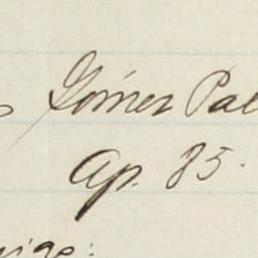 Gómez Pal
Ap. 85.
migo: